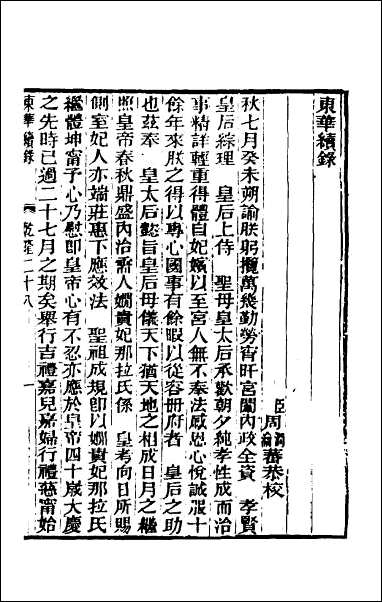 東華續錄
臣周潤蕃恭校
秋七月癸未朔諭朕躬攬萬幾勤勞宵旰宮闈內政全資　孝賢
皇后綜理　皇后上侍　聖母皇太后承歡朝夕純孝性成而治
事精詳輕重得體自妃嬪以至宮人無不奉法感恩心悅誠服十
餘年來朕之得以專心國事有餘暇以從容冊府者　皇后之助
也茲奉　皇太后懿旨皇后母儀天下猶天地之相成日月之繼
照皇帝春秋鼎盛內治需人嫻貴妃那拉氏係　皇考向日所賜
側室妃人亦端莊惠下應效法　聖祖成規即以嫻貴妃那拉氏
繼體坤甯予心乃慰即皇帝心有不忍亦應於皇帝四十歲大慶
之先時已過二十七月之期矣舉行吉禮嘉兒嘉婦行禮慈甯始
東華續錄　乾隆二十八　一